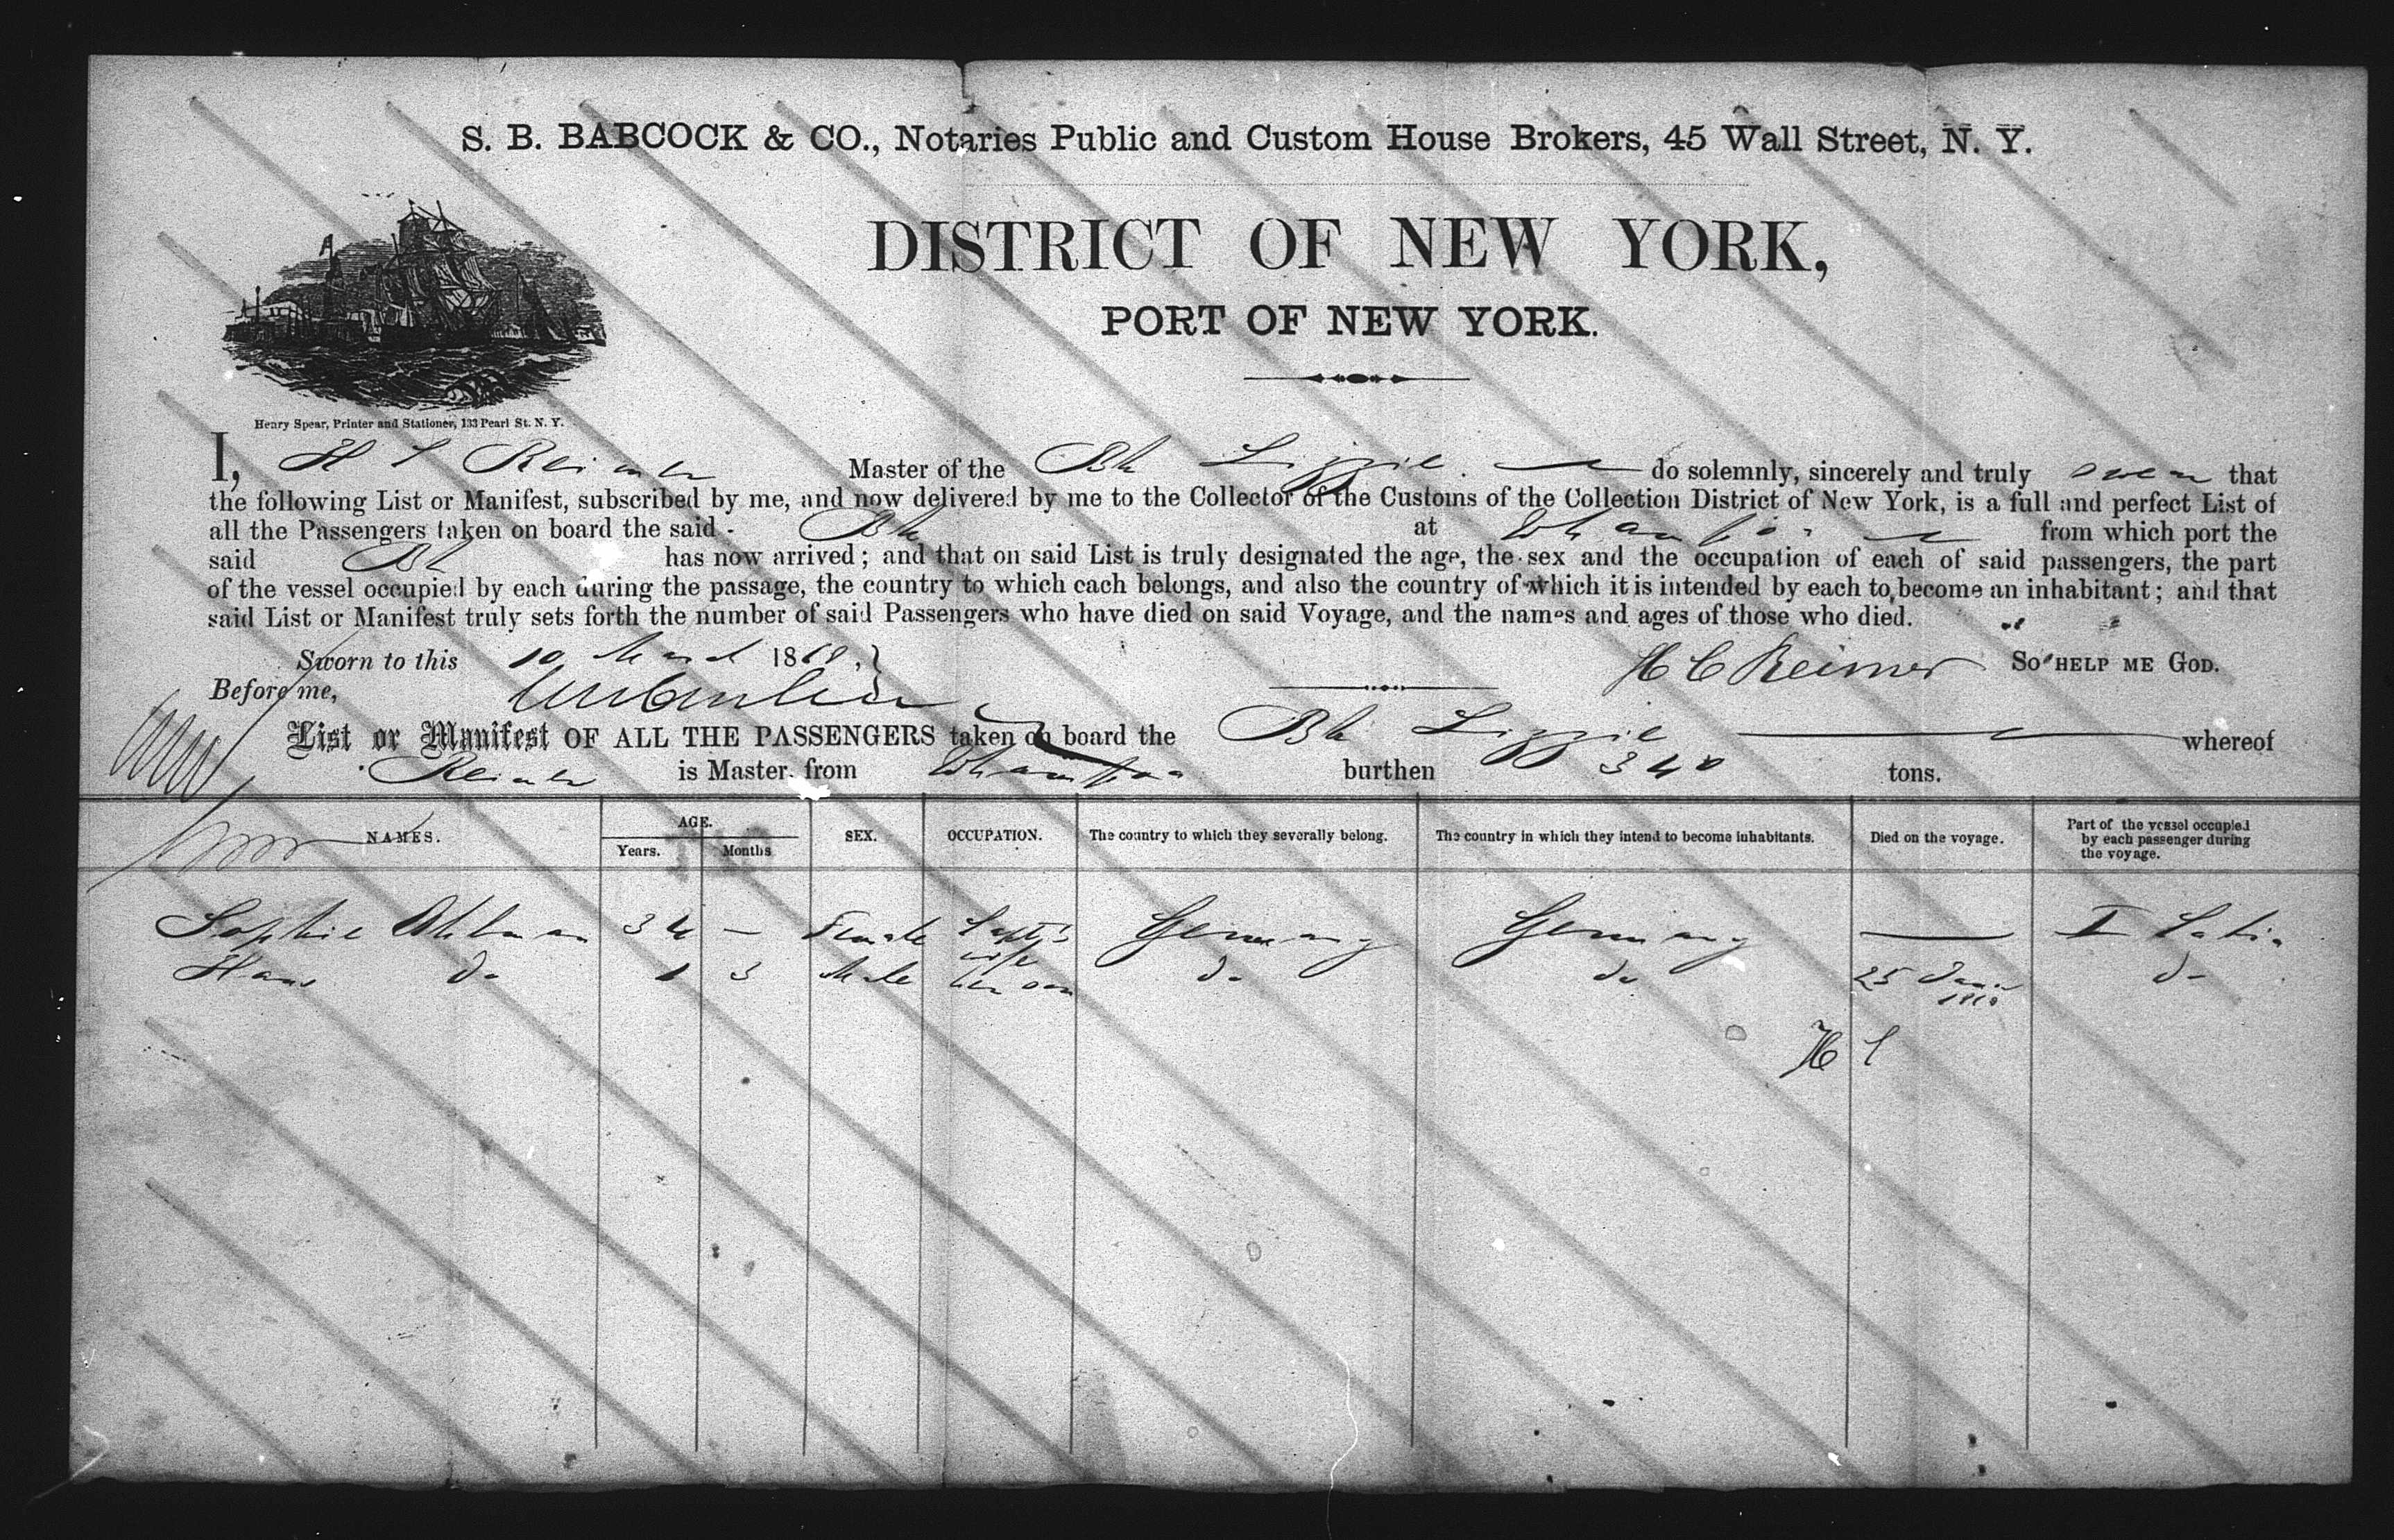 S. B. BABCOCK & CO., Notaries Public and Custom House Brokers, 45 Wall Street, N. Y.
DISTRICT OF NEW YORK,
PORT OF NEW YORK.
Henry Spear, Printer and Stationer, 133 Pearl St. N. Y.
I, H Reimer Master of the Bk Lizzie. do solemnly, sincerely and truly swear that
the following List or Manifest, subscribed by me, and now delivered by me to the Collector of the Customs of the Collection District of New York, is a full and perfect List of
all the Passengers taken on board the said Bk at Whampoa from which port the
said Bk has now arrived; and that on said List is truly designated the age, the sex and the occupation of each of said passengers, the part
of the vessel occupied by each during the passage, the country to which each belongs, and also the country of which it is intended by each to become an inhabitant; and that
said List or Manifest truly sets forth the number of said Passengers who have died on said Voyage, and the names and ages of those who died.
Sworn to this 10 March 186
H C Reimer So HELP ME GOD.
Before me,
List or Manifest OF ALL THE PASSENGERS taken on board the Bk Lizzie whereof
Reimer is Master, from Whampoa burthen 340 tons.
NAMES. AGE. Years. Months SEX. OCCUPATION. The country to which they severally belong. The country in which they intend to become inhabitants. Died on the voyage. Part of the vessel occupied by each passenger during the voyage.
Sophie Ohlman 34 — Female Capt's wife Germany Germany — I Cabin
Hans do 1 3 Male her son do do 25 Jan do
H C